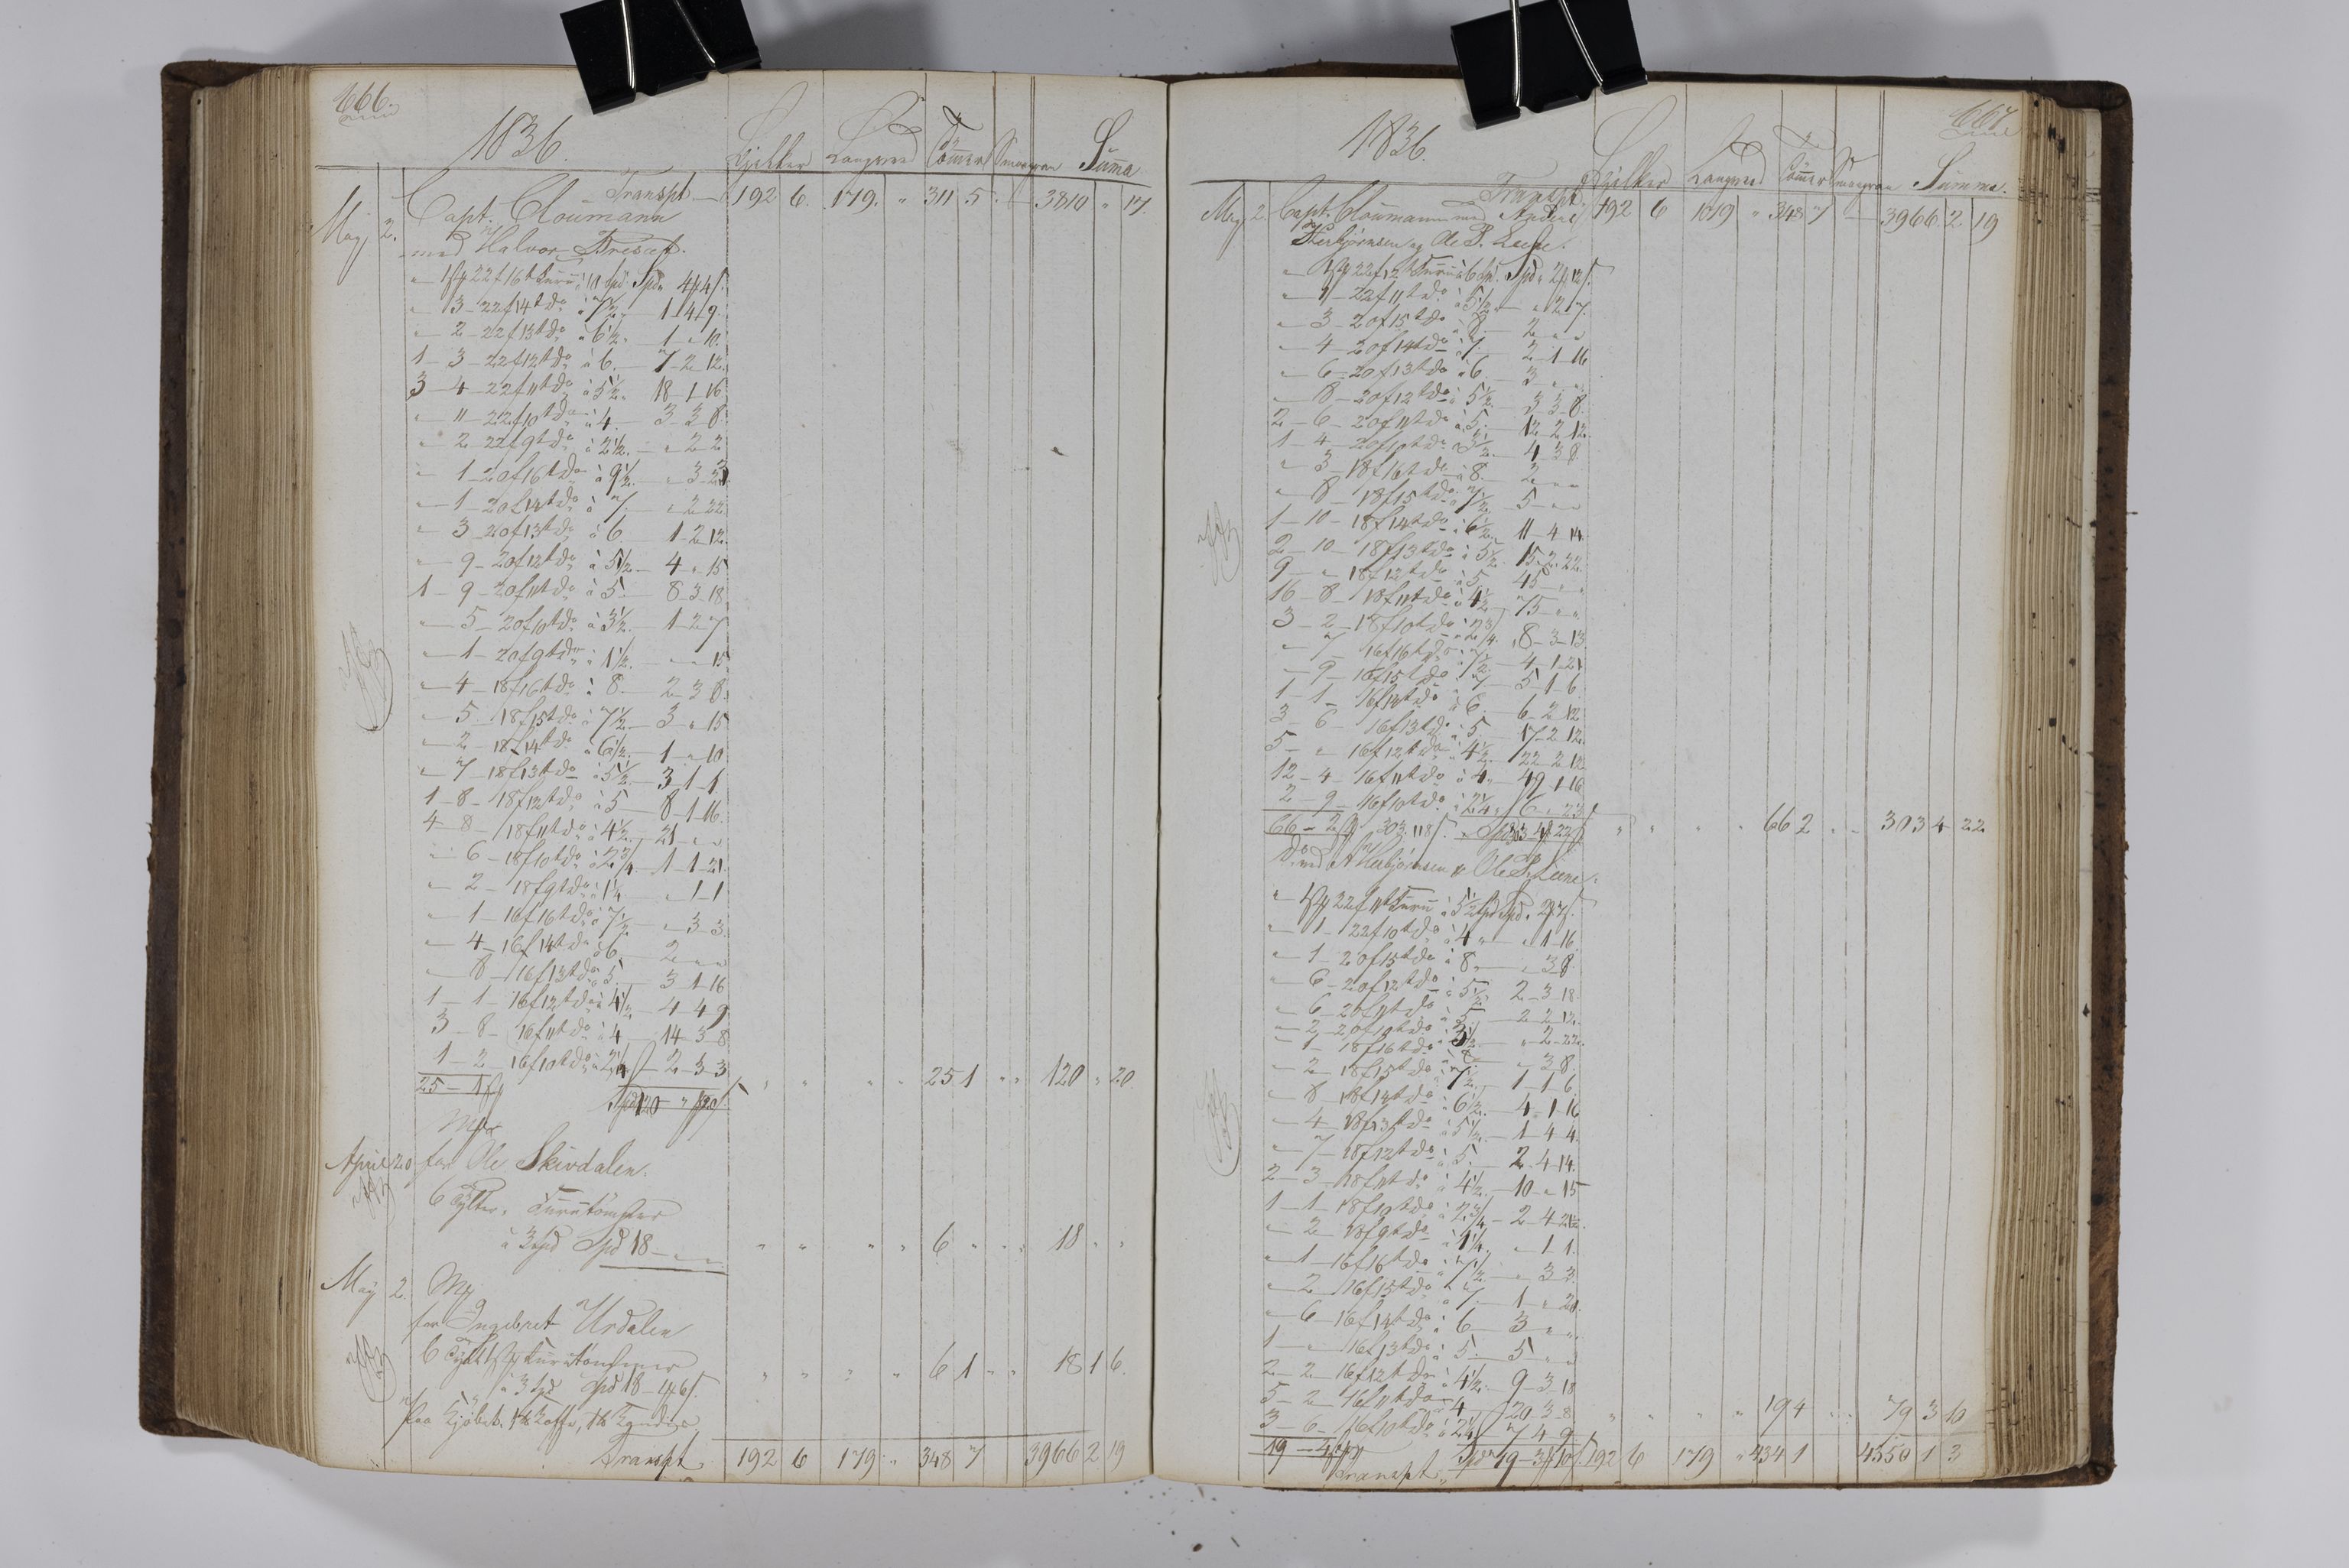 666.
1836. Bjelker Langved Tömmer Smaagran Summa
Transpt — 192 6. 179. " 311 5 " — 3810 " 17.
May 2. Capt. Cloumann
med Halvor
" — 1 St 22f 16t Furu à 10 Spd. Spd " 4 # 4 s.
" — 3 – 22f 14t do à 7½ – 1–4–9.
" — 2 – 22f 13t do à 6½ – 1–"–10.
1 – 3 – 22f 12t do à 6. – 7–2–12.
3 – 4 – 22f 11t do à 5½. 18–1–16
" — 11 – 22f 10t do à 4. – 3–3–8.
" — 2 – 22f 9t do à 2½. – "–2–2
" — 1 – 20f 16t do à 9½. – "–3–23
" — 1 – 20f 14t do à 7. – "–2–22.
" — 3 – 20f 13t do à 6. 1–2–12.
" — 9 – 20f 12t do à 5½ – 4–"–15
1 – 9 – 20f 11t do à 5 – 8–3–18
" — 5 – 20f 10t do à 3½. – 1–2–7
" — 1 – 20f 9t do à 1½. – "–"–15
" — 4 – 18f 16t do à 8. – 2–3–8.
" — 5 – 18f 15t do à 7½ – 3–"–15
" — 2 – 18f 14t do à 6½. – 1–"–10
" — 7 – 18f 13t do à 5½. – 3–1–1.
1 – 8 – 18f 12t do à 5 – 8–1–16.
4 – 8 – 18f 11t do à 4½. – 21–"–"
" — 6 – 18f 10t do à 2¾. – 1–1–21.
" — 2 – 18f 9t do à 1¼ – "–1–1
" — 1 – 16f 16t do à 7½ – "–3–3.
" — 4 – 16f 14t do à 6. 2–"–"
" — 8 – 16f 13t do à 5. 3–1–16
1 – 1 – 16f 12t do à 4½ – 4–4–9
3 – 8 – 16f 11t do à 4 – 14–3–8
1 – 2 – 16f 10t do à 2¼ – 2–3–3
25 – 1 St Spd 120 – " # 20 s. " " " " 25 1 " " 120 " 20
April 20 for Ole Skirdalen.
6 Tylter Furutömmer
à 3 Spd Spd 18 – " – " " " " " 6 " " " 18 " "
May 2.
for Ingebret Urdalen
6 Tylt 1 St Furutömmer
à 3 Spd Spd 18 – 1 # 6 s. " " " " 6 1 " " 18 1 6.
Transpt 192 6 179 " 348 7 3966 2 19
667
1836. Bjelker Langved Tömmer Smaagran Summa.
Transpt. 192 6 179 " 348 7 — 3966 2 19
May 2. Capt. Cloumann med Anders
Herbjörnsen og Ole P.
" — 1 St 22f 12t Furu à 6 Spd. Spd " 2 # 12 s.
" — 1 – 22f 11t do à 5½ – "–2–7.
" — 3 – 20f 15t do à 8. – 2–"–"
" — 4 – 20f 14t do à 7. 2–1–16
" — 6 – 20f 13t do à 6. 3–"–"
" — 8 – 20f 12t do à 5½. 3–3–8.
2 – 6 – 20f 11t do à 5. 12–2–12.
1 – 4 – 20f 10t do à 3½. 4–3–8.
" — 3 – 18f 16t do à 8. 2–"–"
" — 8 – 18f 15t do à 7½. 5–"–"
1 – 10 – 18f 14t do à 6½. 11–4–14.
2 – 10 – 18f 13t do à 5½. 15–2–22.
9 – " – 18f 12t do à 5 45–"–"
16 – 8 – 18f 11t do à 4½. 75–"–"
3 – 2 – 18f 10t do à 2¾. 8–3–13.
" — 7 – 16f 16t do à 7½ – 4–1–21
" — 9 – 16f 15t do à 7 – 5–1–6.
1 – 1 – 16f 14t do à 6. – 6–2–12
3 – 6 – 16f 13t do à 5 – 17–2–12.
5 – " – 16f 12t do à 4½. 22–2–12.
12 – 4 – 16f 11t do à 4. 49–1–16
2 – 9 – 16f 10t do à 2¼. 6–"–23
66 – 2 St Spd 303 – 4 # 22 s. " " " " 66 2 " " 303 4 22
Do med A Herbjörnsen & Ole P.
" — 1 St 22f 11t Furu à 5½ Spd Spd " 2 # 7 s.
" — 1 – 22f 10t do à 4 " – "–1–16.
" — 1 – 20f 15t do à 8 " – "–3–8.
" — 6 – 20f 12t do à 5½ 2–3–18.
" — 6 – 20f 11t do à 5 – 2–2–12.
" — 2 – 20f 10t do à 3½ – "–2–22.
" — 1 – 18f 16t do à 8 – "–3–8.
" — 2 – 18f 15t do à 7½. – 1–1–6.
" — 8 – 18f 14t do à 6½. – 4–1–16
" — 4 – 18f 13t do à 5½. – 1–4–4.
" — 7 – 18f 12t do à 5. – 2–4–14.
2 – 3 – 18f 11t do à 4½. – 10–"–15
1 – 1 – 18f 10t do à 2¾ – 2–4–22.
" — 2 – 18f 9t do à 1¼. – "–1–1.
" — 1 – 16f 16t do à 7½. – "–3–3.
" — 2 – 16f 15t do à 7. – 1–"–20.
" — 6 – 16f 14t do à 6 – 3–"–"
1 – " – 16f 13t do à 5. 5–"–"
2 – 2 – 16f 12t do à 4½. 9–3–18
5 – 2 – 16f 11t do à 4 – 20–3–8
3 – 6 – 16f 10t do à 2¼ 7–4–9. " " " " 19 4 " " 79 3 10
19 – 4 St Spd 79 – 3 # 10 s. 192 6 179 " 434 1 4350 1 3
Transpt.